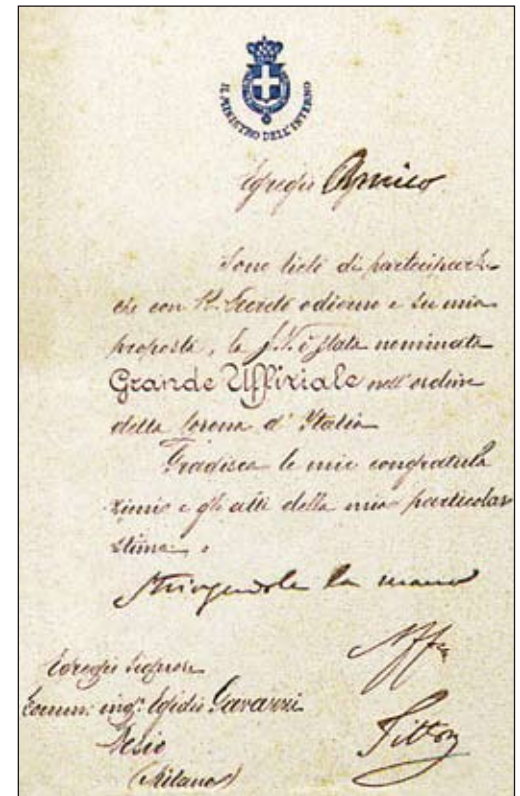 IL MINISTRO DELL'INTERNO
Egregio Amico
Sono lieto di parteciparle
che con R. Decreto odierno e su mia
proposta, la S.V. è stata nominata
Grande Uffiziale nell'ordine
della Corona d'Italia
Gradisca le mie congratula
zioni e gli atti della mia particolar
stima.
Stringendole la mano
Egregio Signore
Comm: ingr. Egidio Gavazzi
Desio
(Milano)